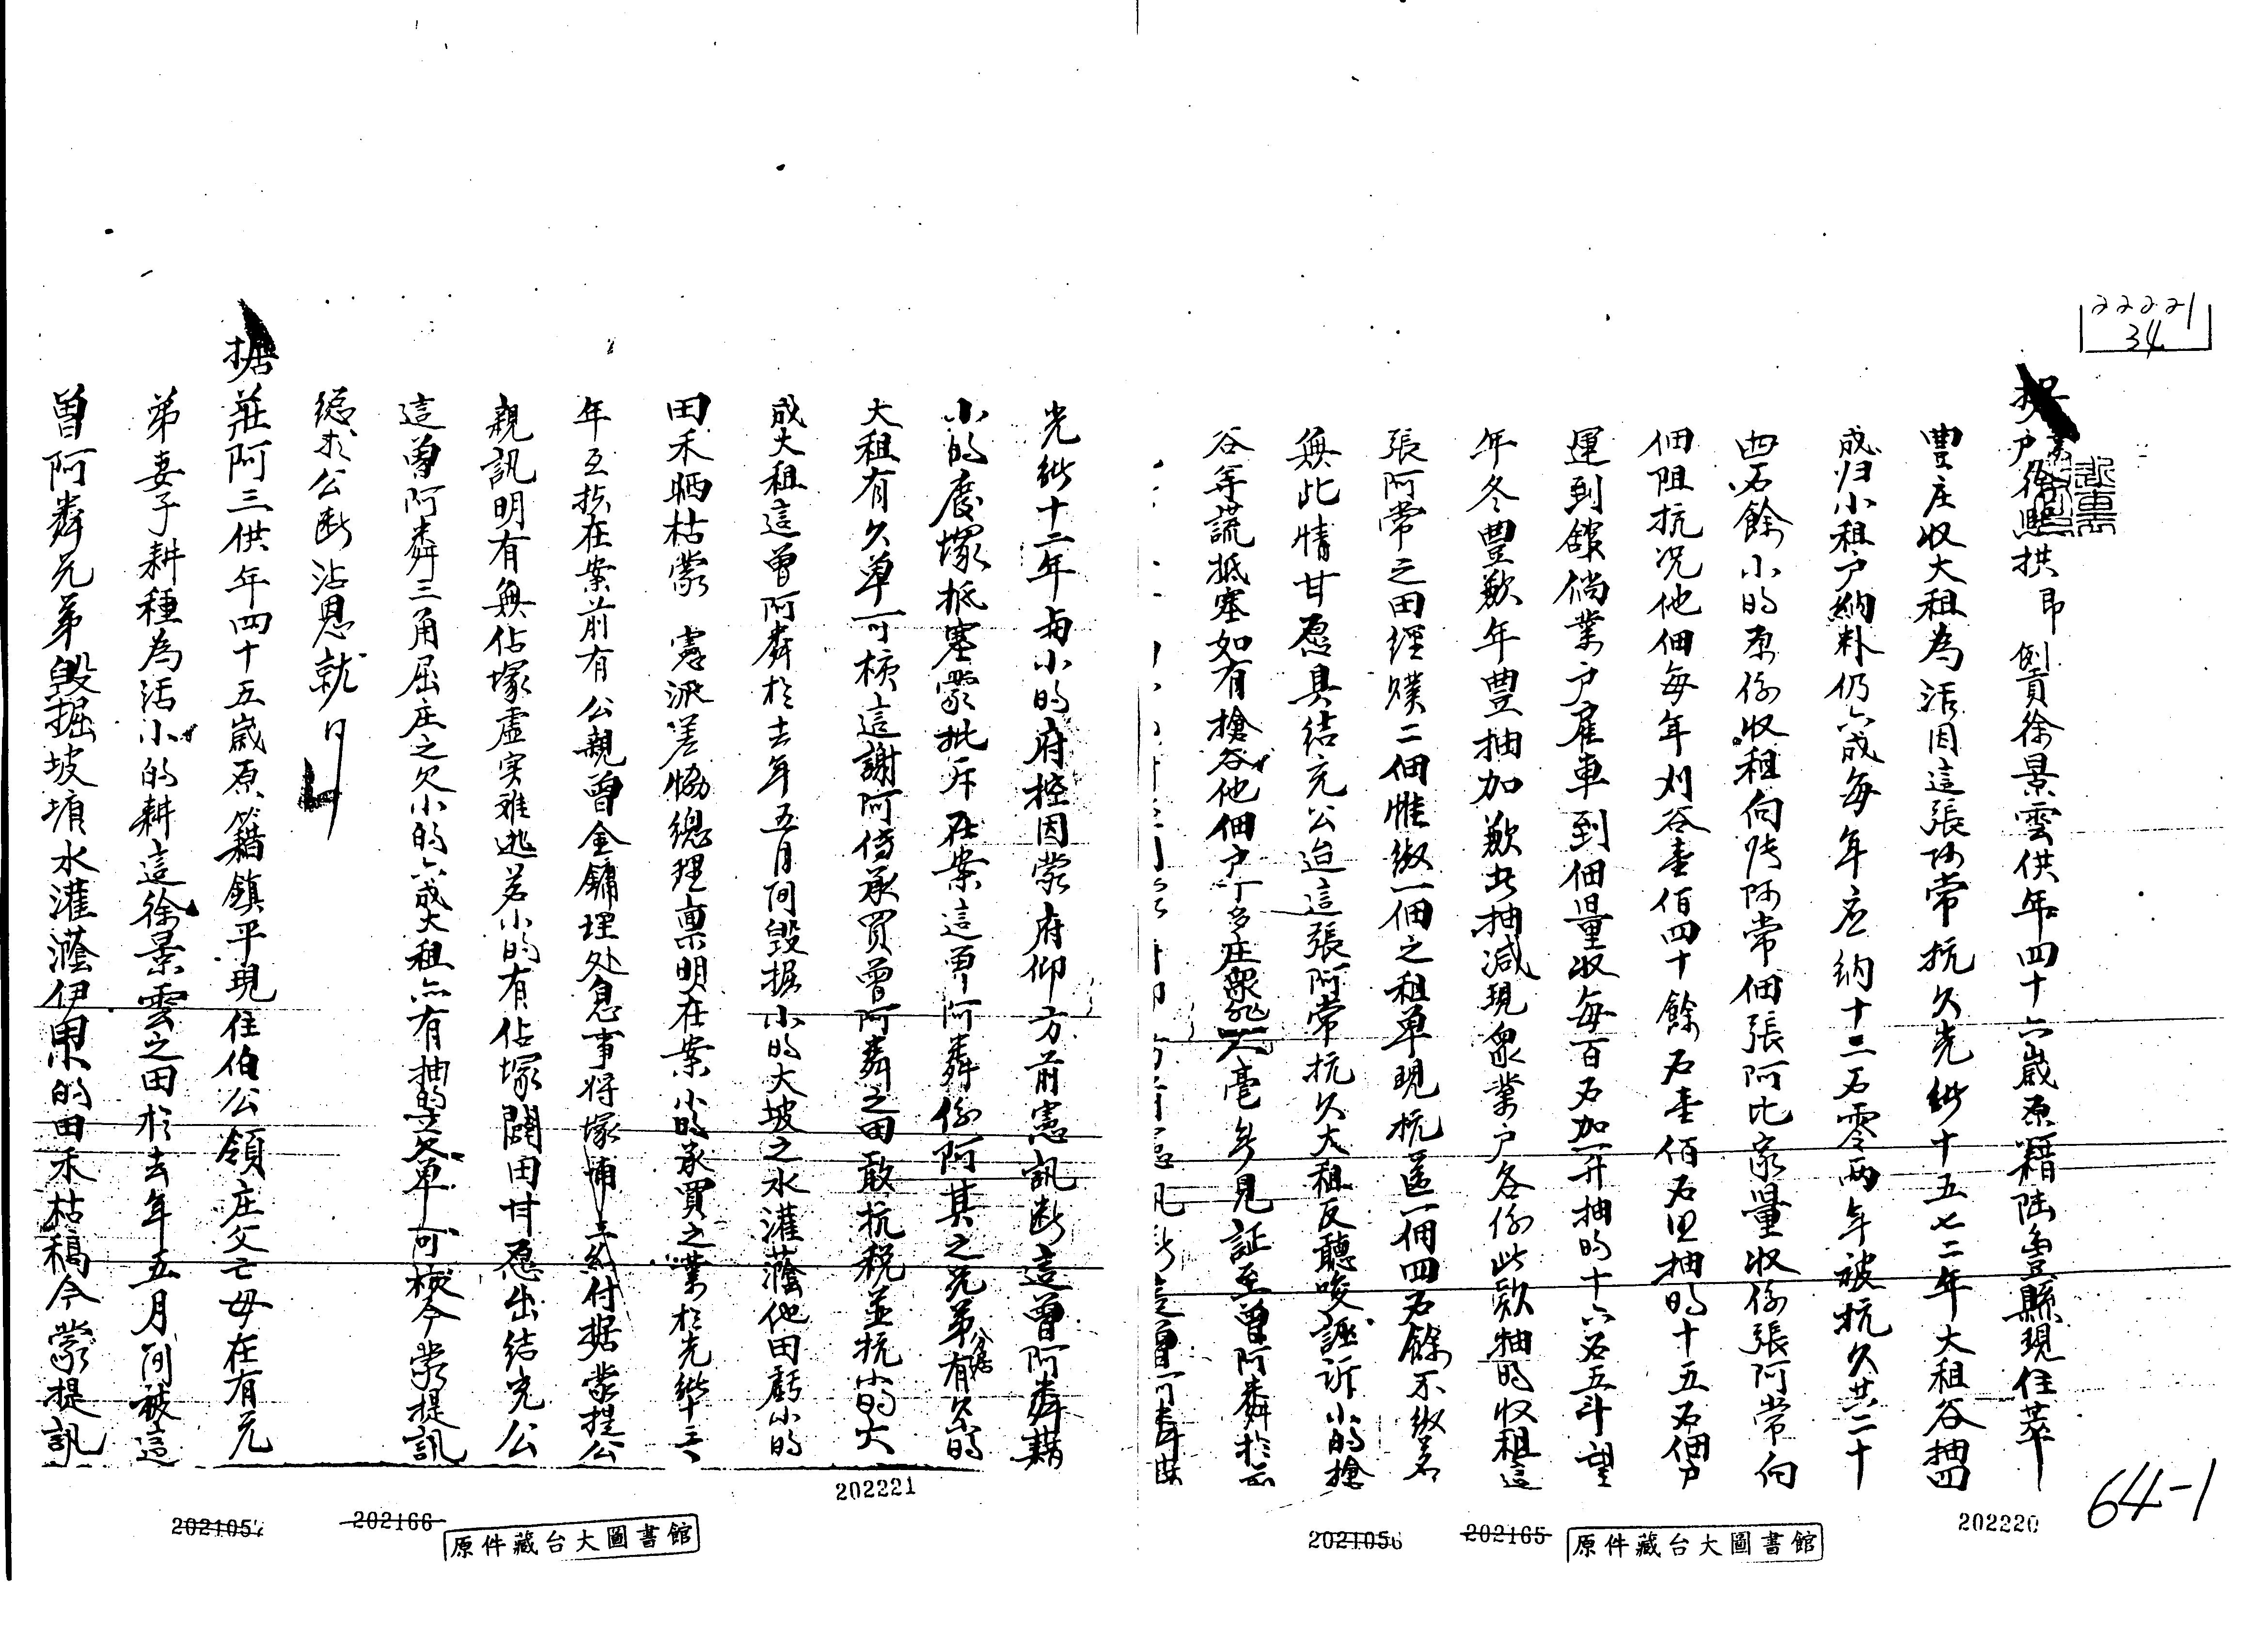 22221
34
戶徐熙拱即例貢徐景雲供年四十六歲原籍陸豊縣現住萃
豊庄收大租為活因這張阿常抗欠光緒十五七二年大租谷抽四
成归小租戶納料仍六成每年应納十三石零兩年被抗欠共二十
四石餘小的原係收租向張阿常佃張阿比家量收係張阿常向
佃阻抗况他佃每年刈谷壹佰四十餘石壹佰石田抽的十五石佃戶
運到館倘業戶雇車到佃量收每百石加一升抽的十六石五斗望
年冬豊歉年豊抽加歉此抽減現衆業戶各係此欵抽的收租這
張阿常之田經贌二佃惟繳一佃之租單現抗匿一佃四石餘不繳若
無此情甘愿具结充公迨這張阿常抗欠大租反聽唆誣訴小的搶
谷等謊抵塞如有搶谷他佃戶丁多庄衆豈毫無見証至曾阿粦於
光緒十二年与小的府控因蒙府仰方前憲訊断這曾阿粦藉
小的廢塚抵塞蒙批斥在案這曾阿粦係阿其之兄弟分居有欠的
大租有欠單可核這謝阿传承買曾阿粦之田敢抗税並抗小的大
成大租這曾阿粦於去年五月间毀掘小的大坡之水灌蔭他田虧小的
田禾晒枯蒙 憲派差協總理禀明在案小的承買之業於光緒十三
年互控在案前有公親曾金鏞埋处息事将塚埔立約付据蒙提公
親訊明有無佔塚虚实难逃若小的有佔塚闢田甘愿出结充公
這曾阿粦三角屈庄之欠小的六成大租亦有抽的欠單可核今蒙提訊
總求公断沾恩就是
据莊阿三供年四十五歲原籍鎮平現住伯公領庄父亡母在有兄
弟妻子耕種為活小的耕這徐景雲之田於去年五月间被這
曾阿粦兄弟毀掘坡填水灌蔭伊田小的田禾枯稿今蒙提訊
64-1
202220
202165
2021056
原件藏台大圖書館
202221
202166
2021057
原件藏台大圖書館